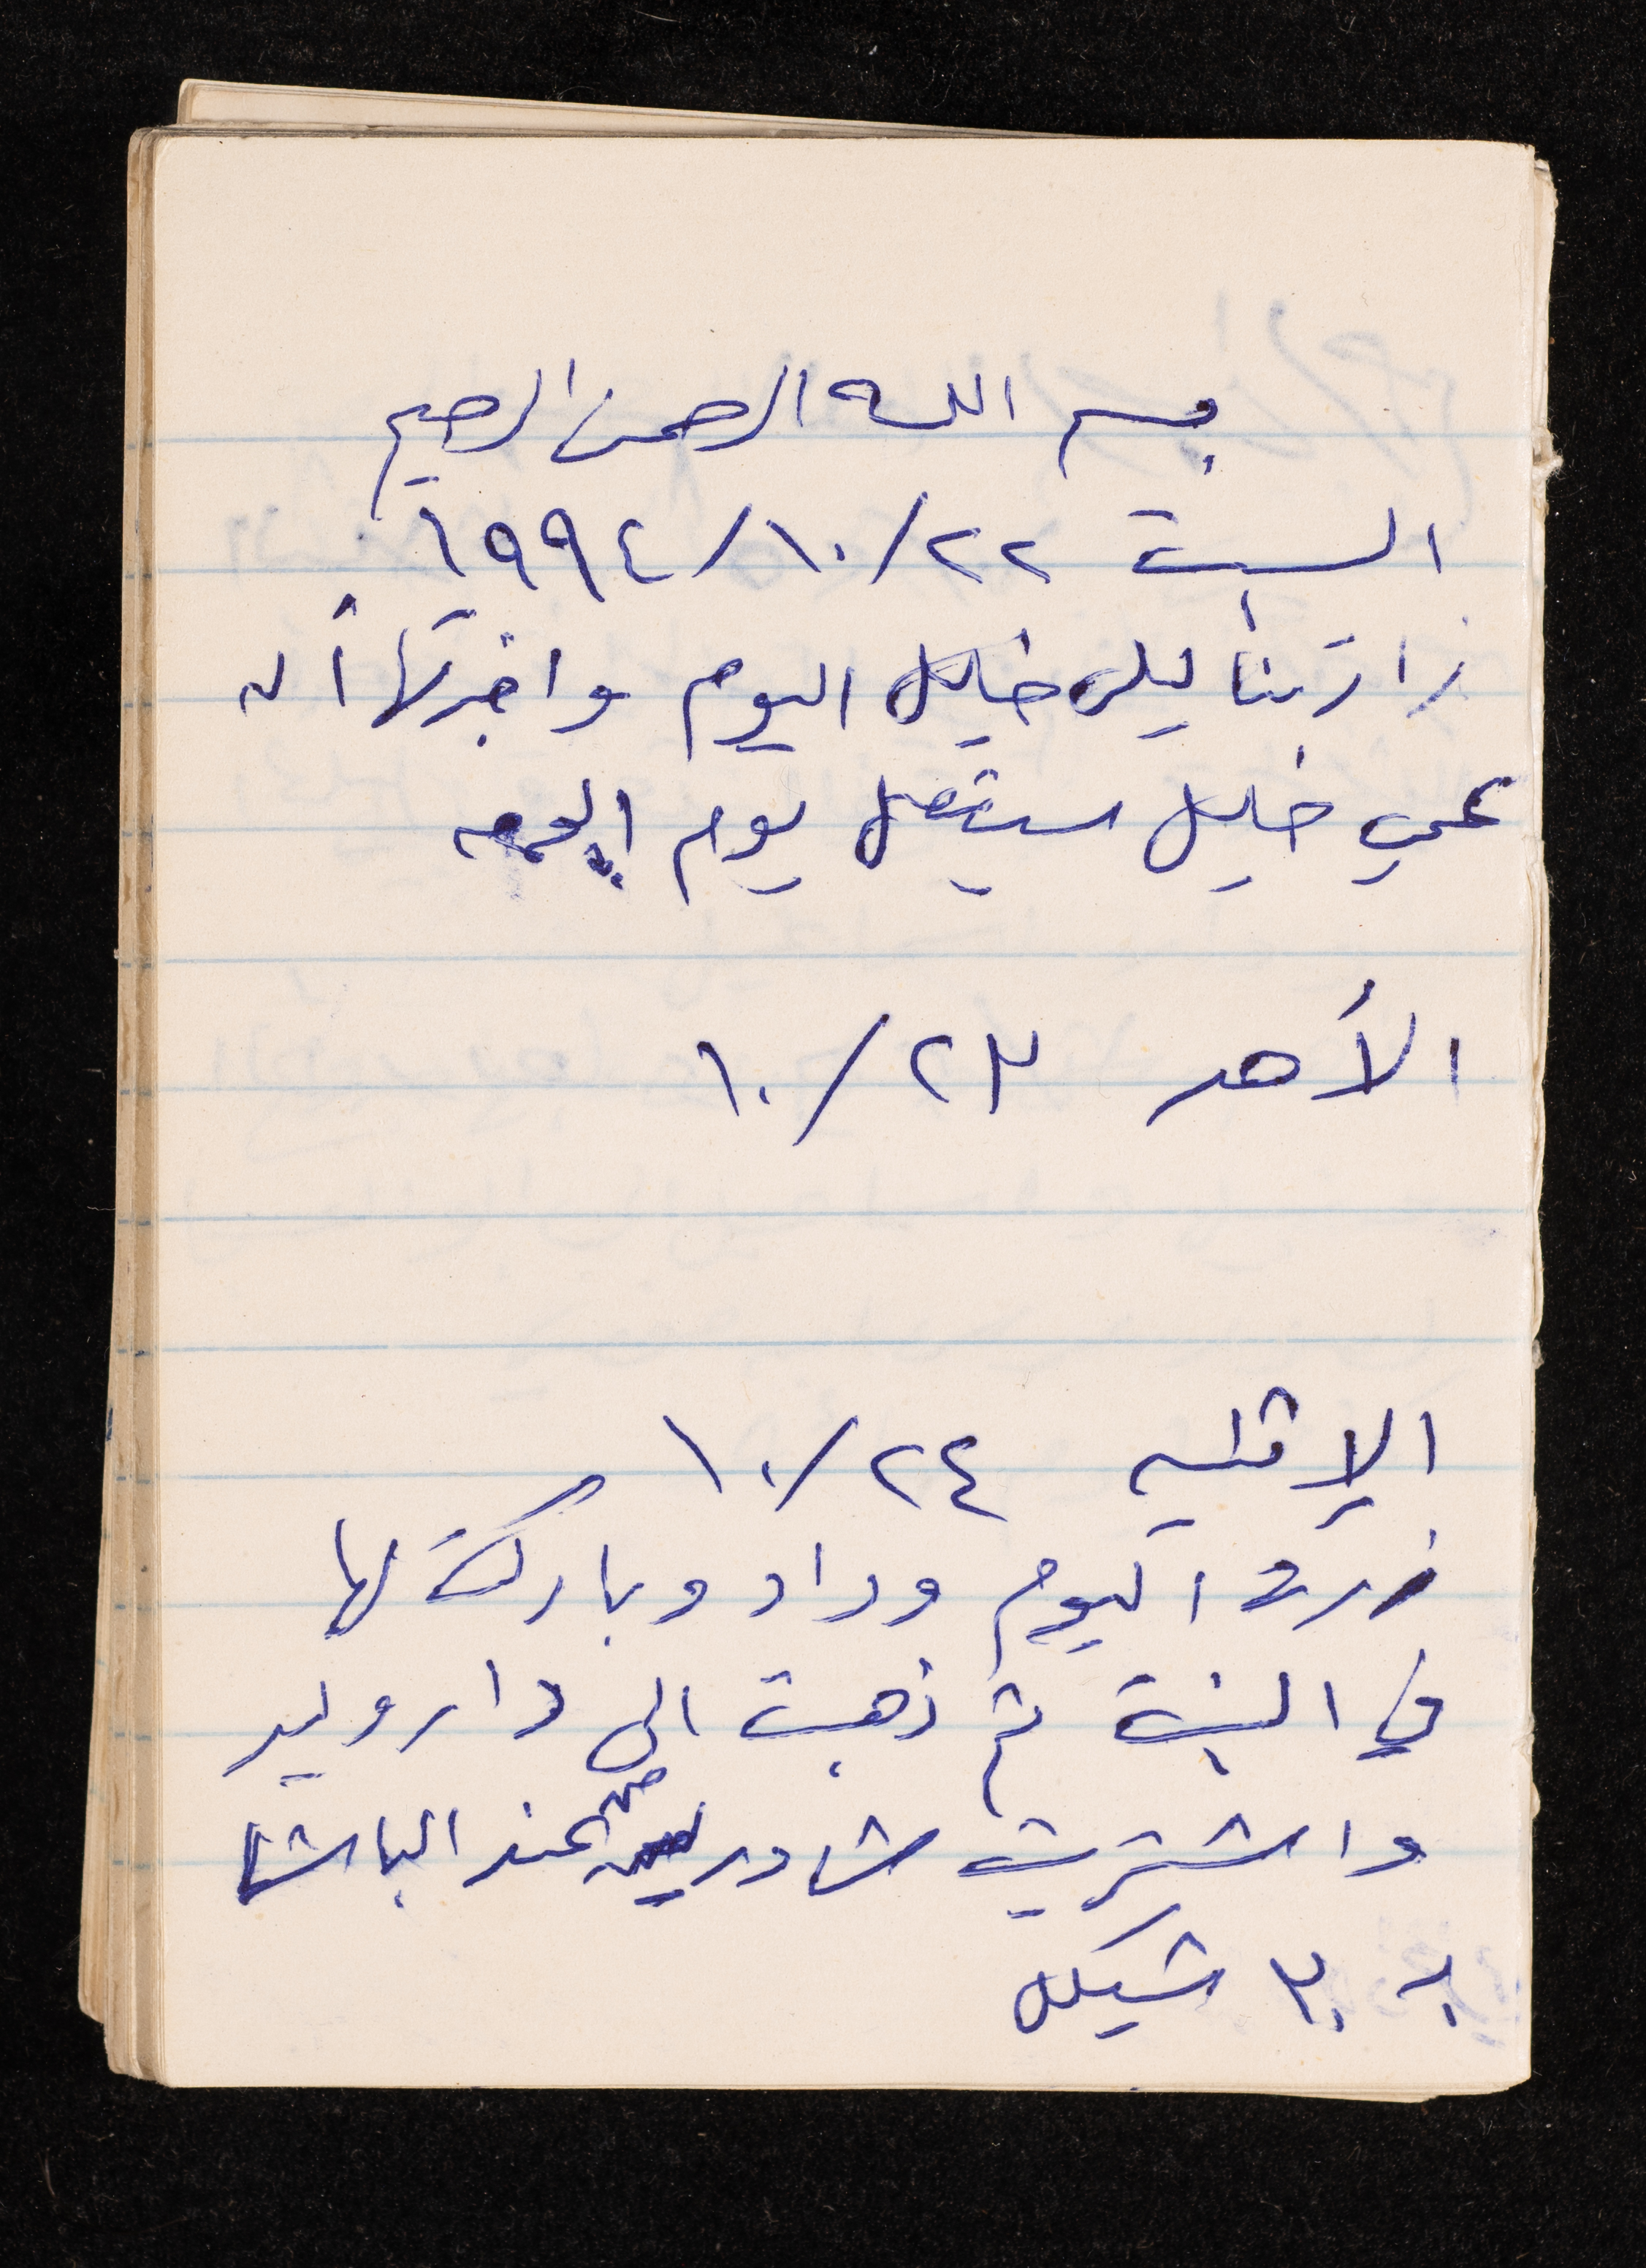 بسم الله الرحمن الرحيم
السبت ٢٢/١٠/١٩٩٤
زارتنا ليلى خليل اليوم واخبرتها أن
عمي خليل سيتصل يوم الجمعه
الأحد ٢٣/١٠
الإثنين ٢٤/١٠
زرت اليوم وداد وباركت لها
في البنت ثم ذهبت الى دار وليد
واشتريت شادر من عند الباشا
ب ٣٠ شيكل